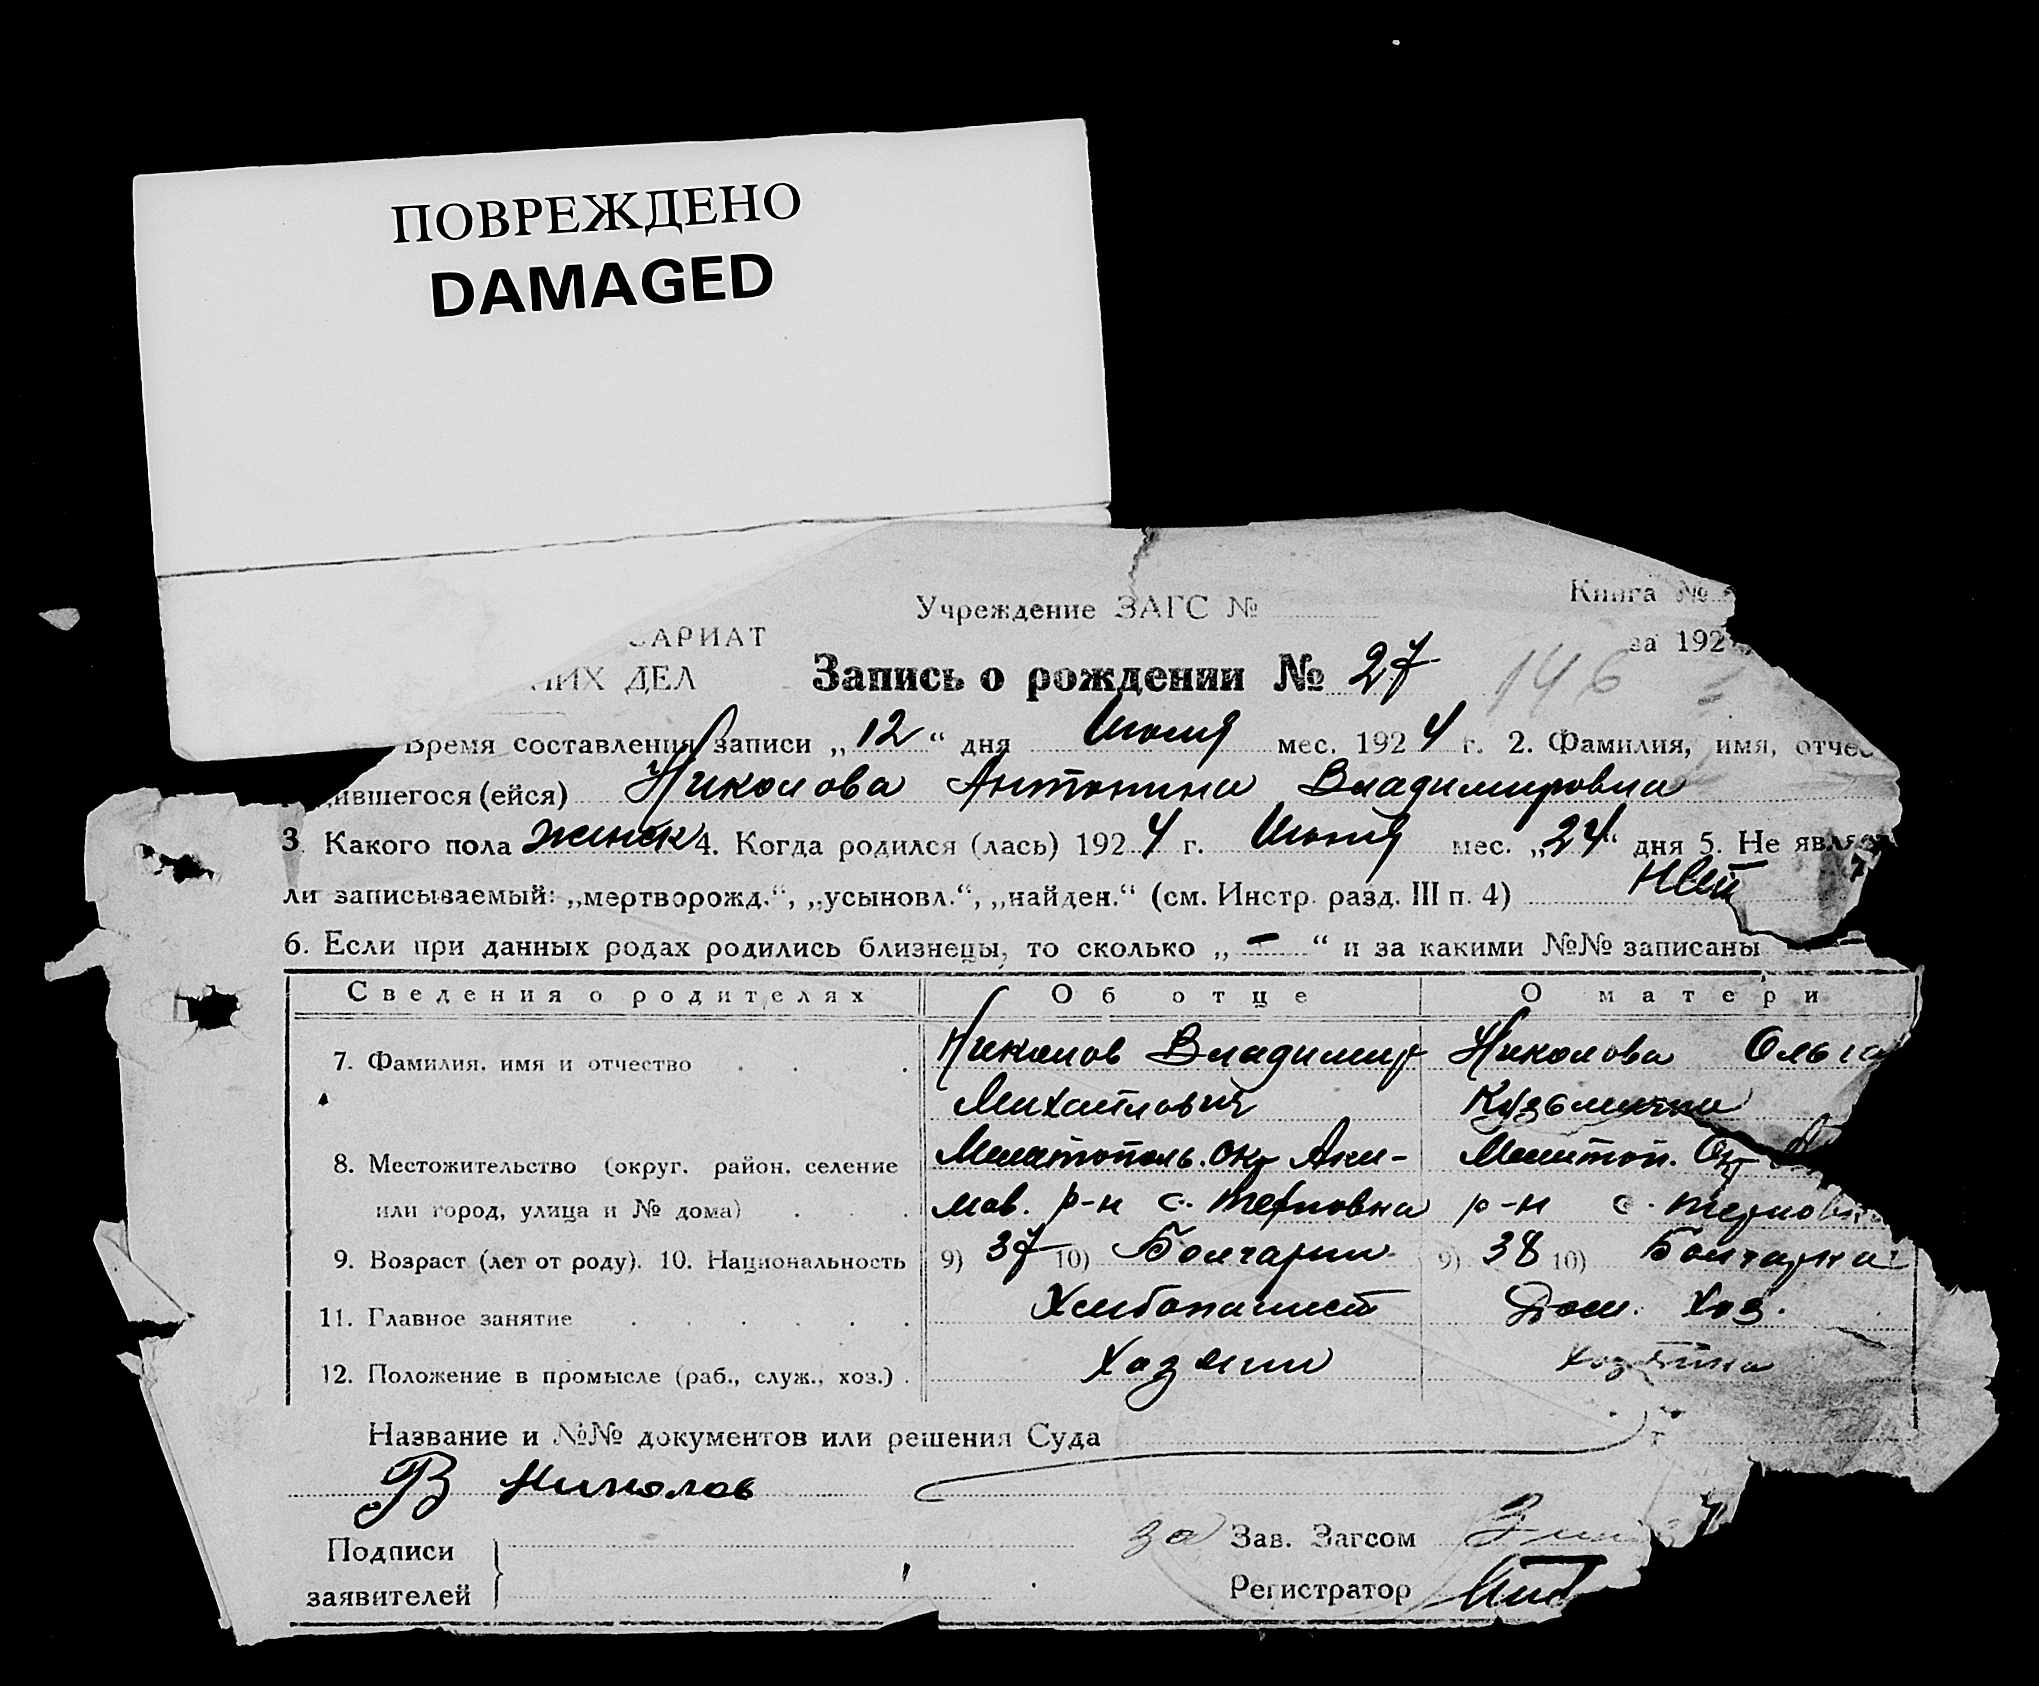 ПОВРЕЖДЕНО
DAMAGED
Книга №
Учреждение ЗАГС №
за 192
САРИАТ
НИХ ДЕЛ
Запись о рождении № 27 146
Время составления записи „12“ дня Июля мес. 1924 г. 2. Фамилия, имя, отчес
дившегося (ейся) Николова Антонина Владимировна
3. Какого пола женск 4. Когда родился (лась) 1924 г. мес. „24“ дня 5. Не являе
ли записываемый: „мертворожд.“, „усыновл.“, „найден.“ (см. Инстр. разд. III п. 4) нет
6. Если при данных родах родились близнецы, то сколько „—“ и за какими №№ записаны
Сведения о родителях Об отце О матери
7. Фамилия, имя и отчество Николов Владимир Николова Ольга
Михайлович Кузьминична
8. Местожительство (округ, район, селение Мелитополь. Окр Аки- Мелитоп. Окр А
или город, улица и № дома) мов. р-н с. Терновка р-н с. Терновка
9. Возраст (лет от роду). 10. Национальность 9) 37 10) Болгарин 9) 38 10) Болгарка
11. Главное занятие Хлебопашест Дом. Хоз.
12. Положение в промысле (раб., служ., хоз.) Хозяин Хозяйка
Название и №№ документов или решения Суда
В Николов
Подписи
заявителей
за Зав. Загсом
Регистратор